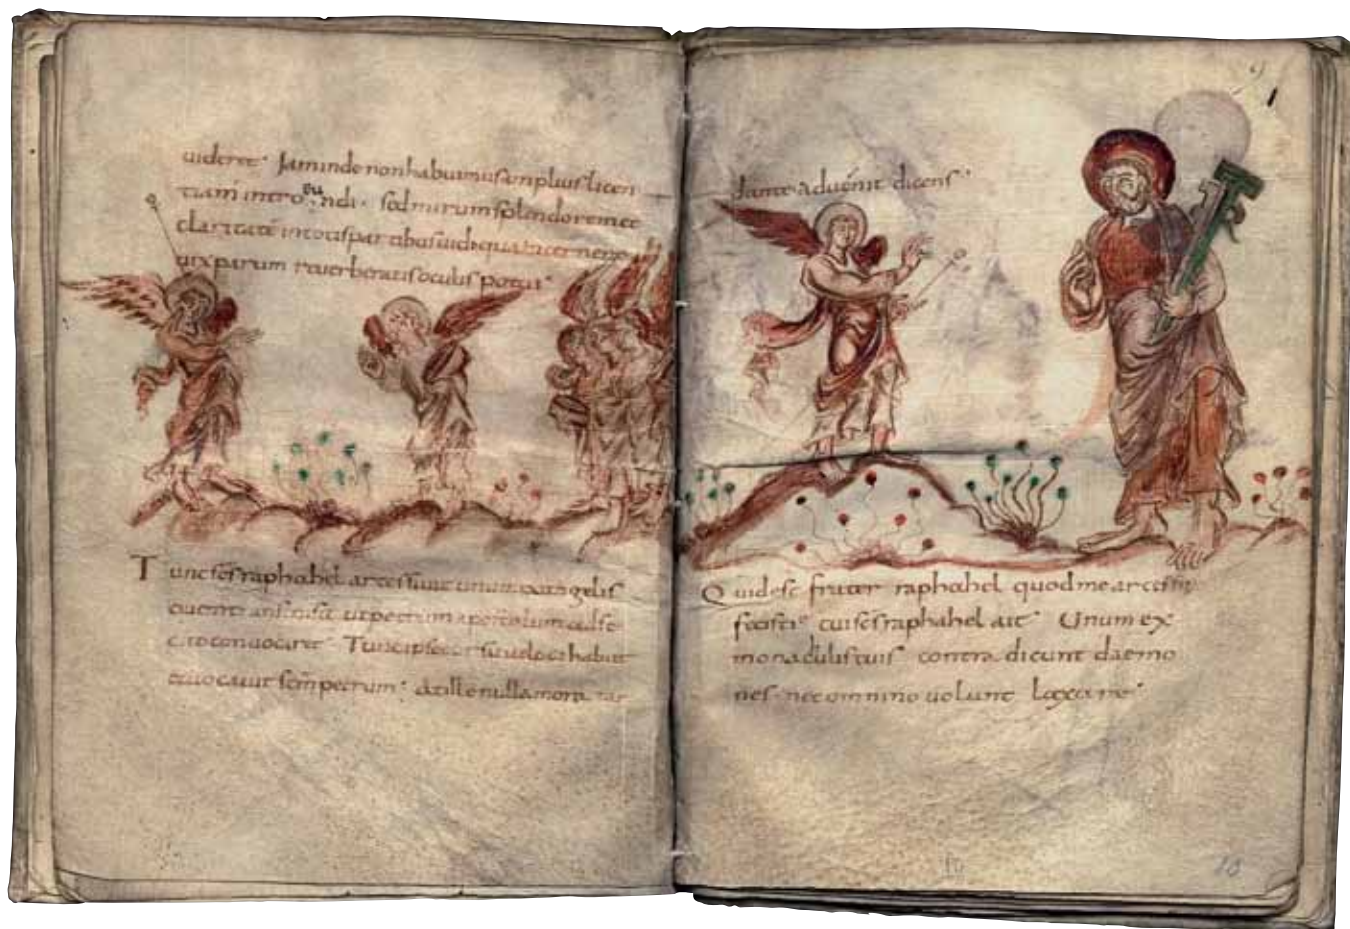 uideret· Iam inde non habuimus amplius licen
tiam introeundi· sed mirum splendorem et
claritatē in totis partibus uidi
uix parum reuerberatis oculis potui·
Tunc scs raphahel arcessiuit unum
ut petrum apostolum ad se
cito conuocaret· Tunc ipse cursu ueloci habiit
et uocauit scm petrum· At ille nulla mora tar
dante aduenit dicens·
Quid est frater raphahel quod me
fecisti· cui scs raphahel ait Unum ex
monachulis tuis contra dicunt daemo
nes· nec omnino uolunt laxare·
10